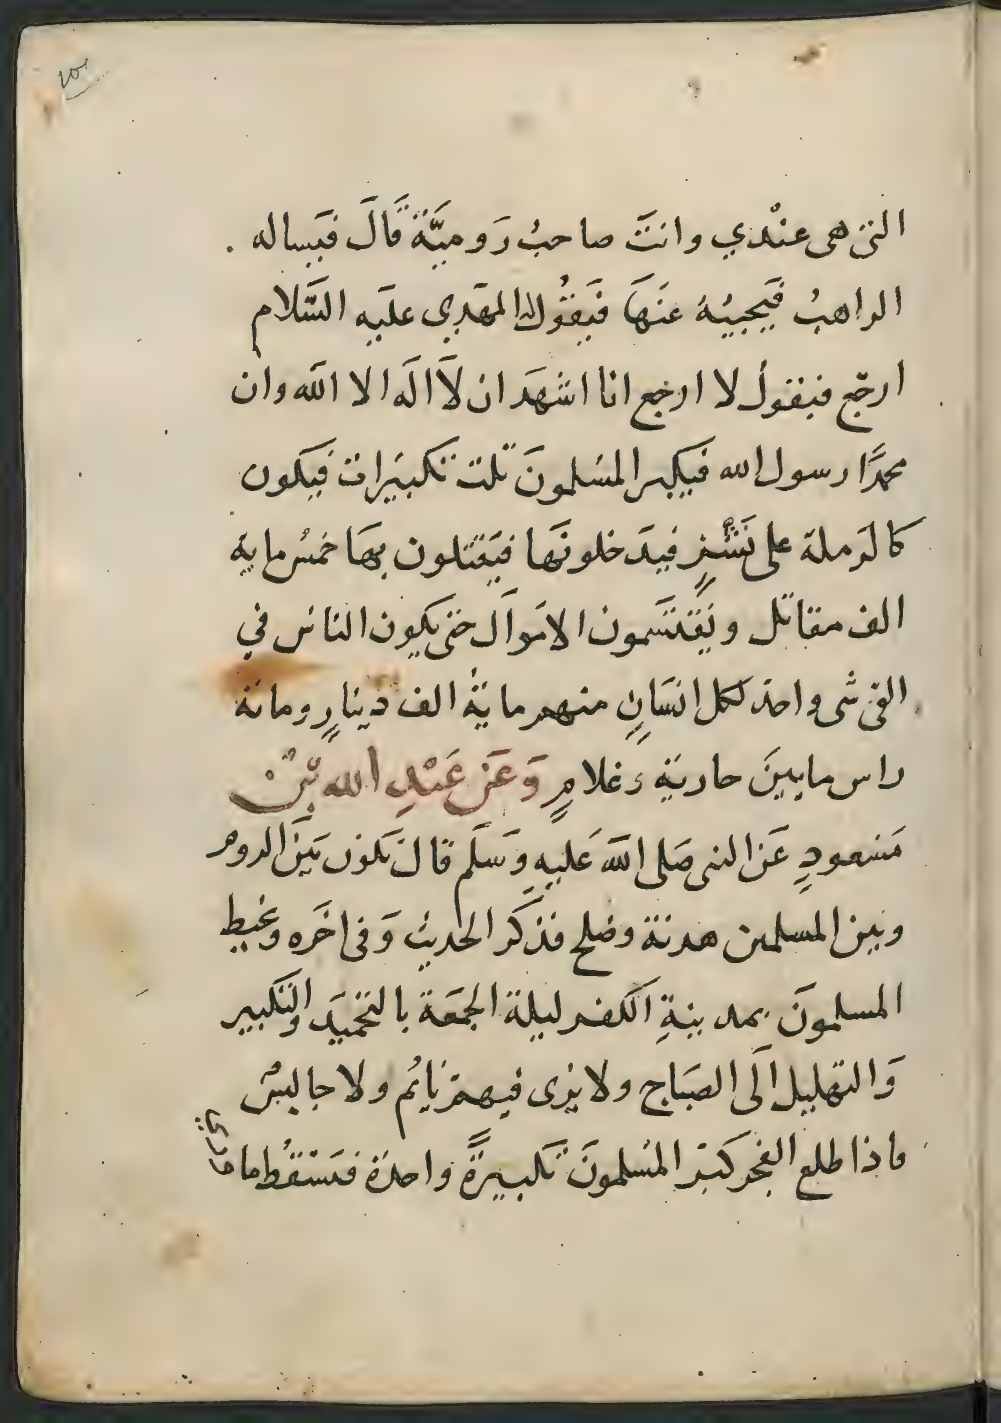 التى هى عنْدي وانتَ صاحبُ رَوميَّة قَالَ فيَساله .
الراهبُ فَيجيبُهُ عَنهَا فَيَقُول المهَدي عليَه السَّلام
ارجّع فيقولُ لا ارجع انا اشهَد ان لاَ الَه الا الله وان
محمدًا رسول الله فيَكبر المسَلمونَ ثلث تكبيَرات فيَكون
كالرَملة على نَشْزٍ فيدَخلونَها فيَقتلون بهَا خمسُماية
الف مقاتل ويَقتَسَمون الامَوالَ حتى يكون الناس في
الفئ شى واحد لكل انسَانٍ منهم مايةُ الف دينارٍ ومائة
راس مابينَ جارية وغلامٍ وَعَن عَبْدِ الله بْن
مَسَعودٍ عَن النبى صَلى الله عَليهِ وَسَلَّم قالَ تكون بَيَن الروم
وبين المسلمين هدنة وصلح فذَكَر الحديث وَفى اخَره ويحيط
المسلمونَ بمدينةِ الكفر ليلة الجمَعَة بالتحَميَد والتَكبير
وَالتهليل الَى الصَباح ولا يرَى فيهم نَائم ولا جالسٌ
فاذا طلع الفجر كبَّر المسُلمونَ تَكبيرةً واحدَة فيَسْقُط ما